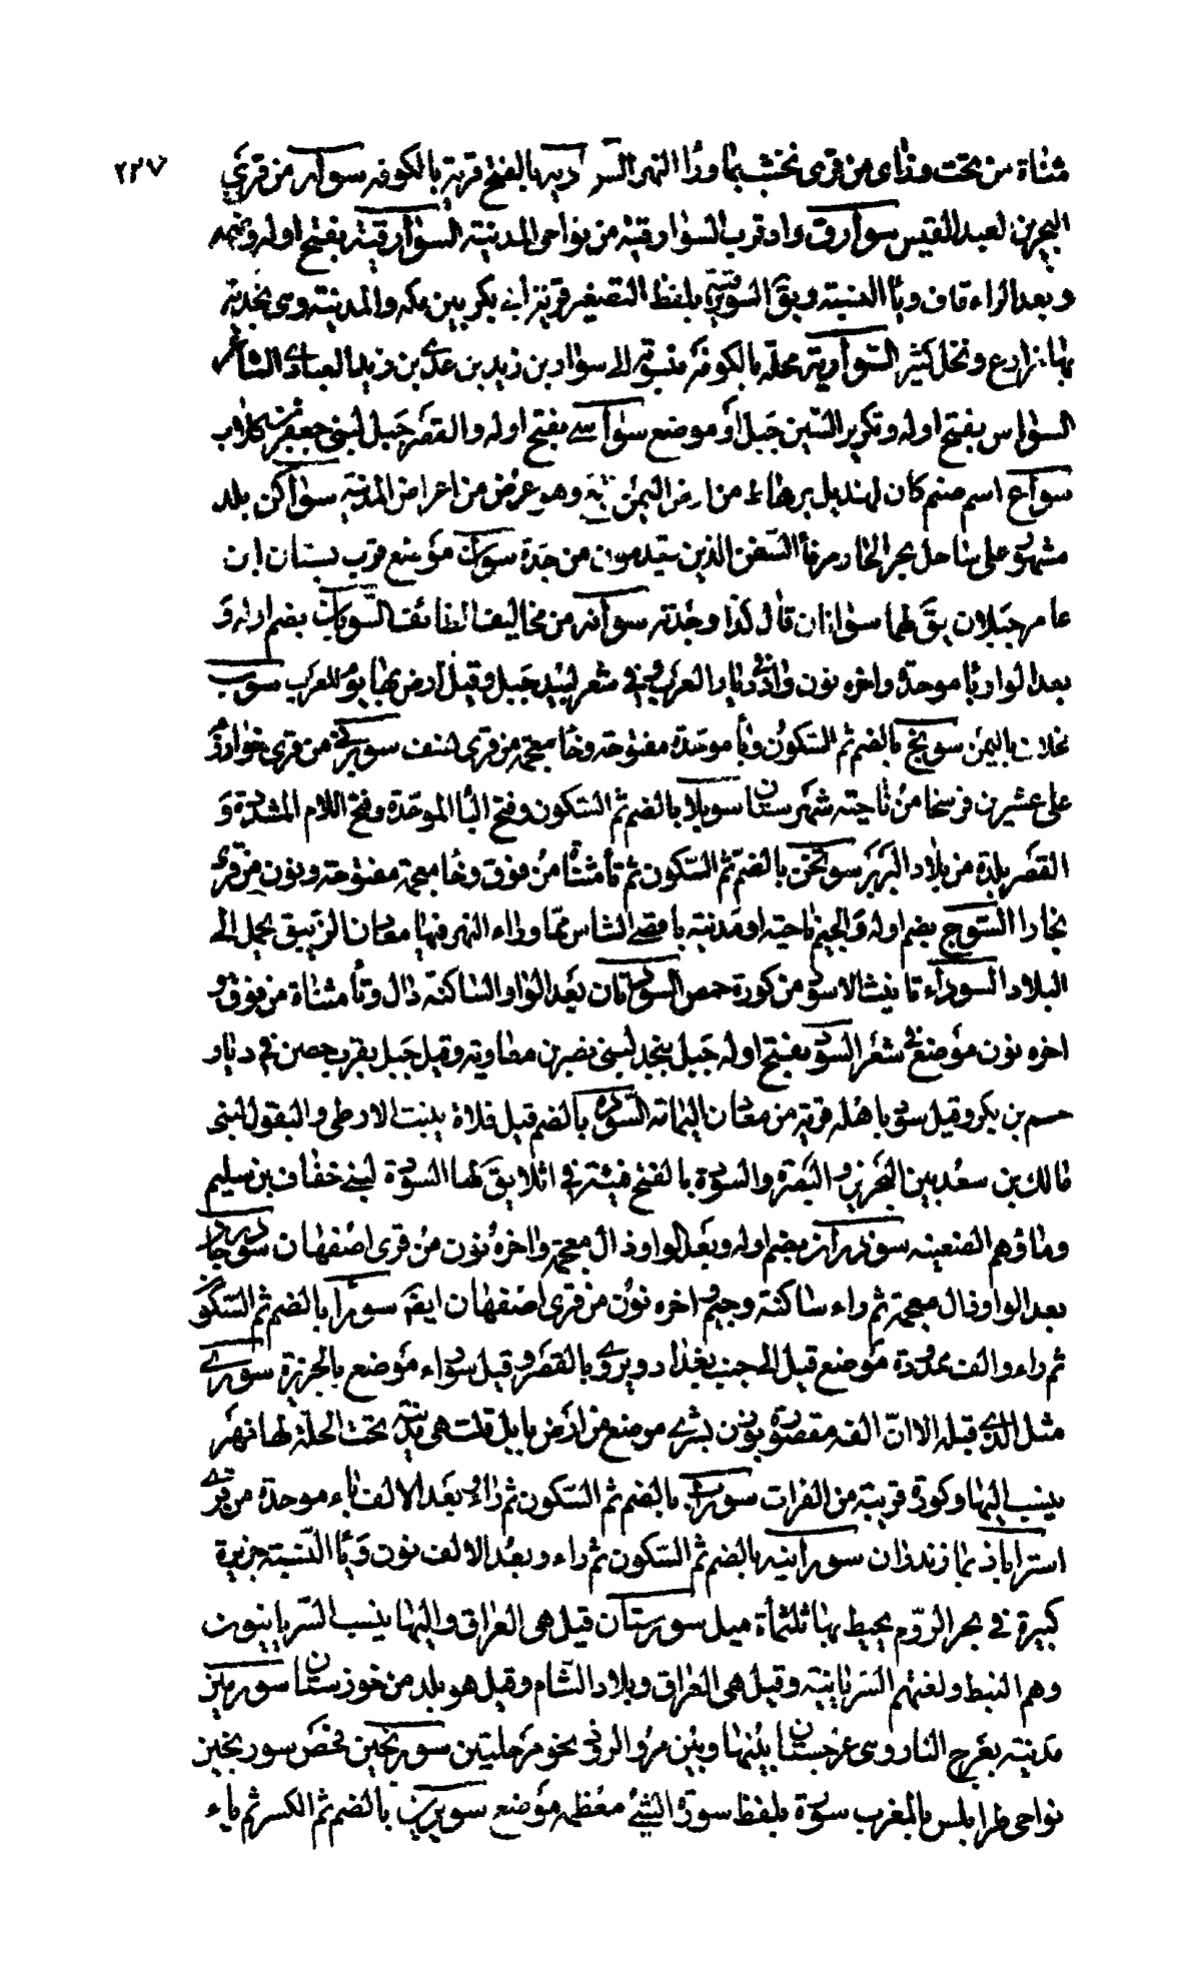 ٢٣٧
مثناة من تحت وزاى من قرى نخشب بما ورا النهر السوادية بالفتح قرية بالكوفه سوار من قرى
البحرين لعبد القيس سوارق واد قرب السوارقية من نواحى المدينة السوارقية بفتح اوله وضمه
وبعد الراء قاف ويا النسبة ويق السويرقية بلفظ التصغير قرية ابى بكر بين مكه والمدينة وهى نجدية
بها مزارع ونخل كثير السوارية محلة بالكوفه منسوبة الى سوار بن زيد بن عدى بن زيد العبادى الشاعر
السواس بفتح اوله وتكرير السين جبل او موضع سواسى بفتح اوله والقصر جبل لبنى جعفر بن كلاب
سواع اسم صنم كان لهذيل برهاط من ارض اليمن وهو عرض من اعراض المدينة سواكن بلد
مشهور على ساحل بحر الجار مرفأ السفن الذين يقدمون من جدة موضع قرب بستان ابن
عامر جبلان يق لهما سوانان قال كذا وجدته سوانه من مخاليف الطائف السوبان بضم اوله و
بعد الواو با موحدة واخره نون واد فى ديار العرب فى شعر لبيد جبل وقيل ارض بها يوم للعرب سوب
مخلاف باليمن سوبخ بالضم ثم السكون وبا موحدة مفتوحة وخا معجمة من قرى نسف سوبرنى من قرى خوارزم
على عشرين فرسخا من ناحية شهرستان سوبلا بالضم ثم السكون وفتح البا الموحدة وفتح اللام المشددة و
القصر بلدة من بلاد البربر سوتخن بالضم ثم السكون ثم تا مثناة من فوق وخا معجمة مفتوحة ونون من قرى
بخارا السوج بضم اوله والجيم ناحية او مدينة باقصى الشاس مما وراء النهر فيها معادن الزيبق يحمل الى
البلاد السوداء تانيث الاسود من كورة حمص السودتان بعد الواو الساكنة دال وتا مثناة من فوق و
اخره نون موضع فى شعر السود بفتح اوله جبل بنجد لبنى نصر بن معاوية وقيل جبل بقرب حصن فى ديار
جسم بن بكر وقيل سود باهله قرية من معادن اليمامة السودة بالضم قيل فلاة ينبت الارطى والبقول لبنى
مالك بن سعد بين البحرين والبصرة والسودة بالفتح خيشة فى اثلا يق لها السودة لبنى خفاف بن سليم
وماؤهم الصعبية سوذران بضم اوله وبعد الواو ذال معجمة واخره نون من قرى اصفهان سوذرجان
بعد الواو ذال معجمة ثم راء ساكنة وجيم واخره نون من قرى اصفهان ايضه سورا بالضم ثم السكون
ثم راء والف ممدودة موضع قيل الى جنب بغداد ويروى بالقصر وقيل سوراء موضع بالجزيرة سورى
مثل الذى قبله الا ان الفه مقصورة بوزن بشرى موضع من ارض بابل قلت هى مدينة تحت الحلة لها نهر
ينسب اليها وكورة قريبة من الفرات سوراب بالضم ثم السكون ثم را وبعد الالف باء موحدة من قرى
استراباذ بمازندران سورانيه بالضم ثم السكون ثم راء وبعد الالف نون ويا النسبة جزيرة
كبيرة فى بحر الروم يحيط بها ثلثمأة ميل سورستان قيل هى العراق واليها ينسب السريانيون
وهم النبط ولغتهم السريانية وقيل هى العراق وبلاد الشام وقيل هو بلد من خوزستان سورمين
مدينة بغرج الشار وهى غرجستان بينها وبين مرو الروذ نحو مرحلتين سورنجين فحص سورنجين
نواحى طرابلس بالمغرب سورة بلفظ سورة الشئ معظمه موضع سورين بالضم ثم الكسر ثم ياء